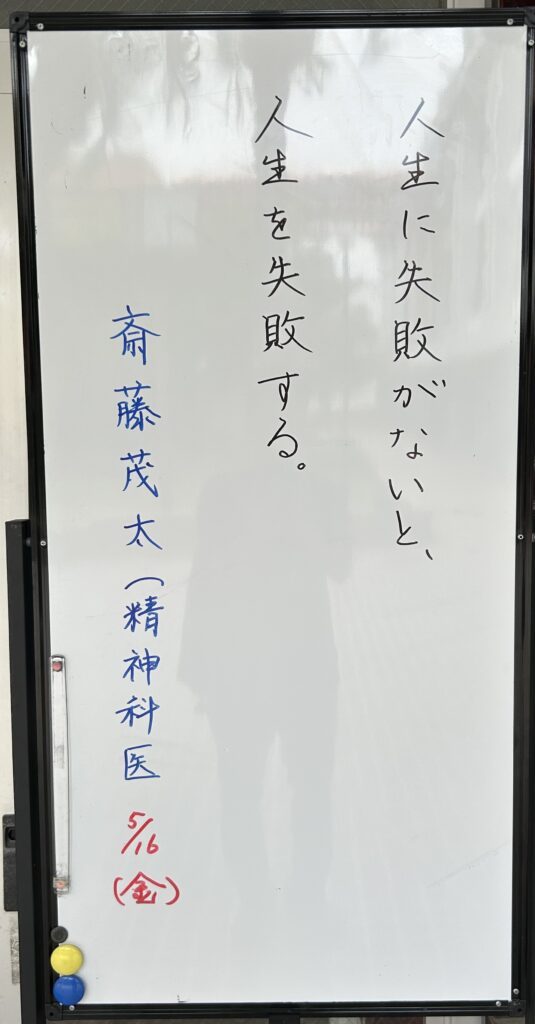 人生に失敗がないと、
人生を失敗する。
斎藤茂太(精神科医
5/16
(金)